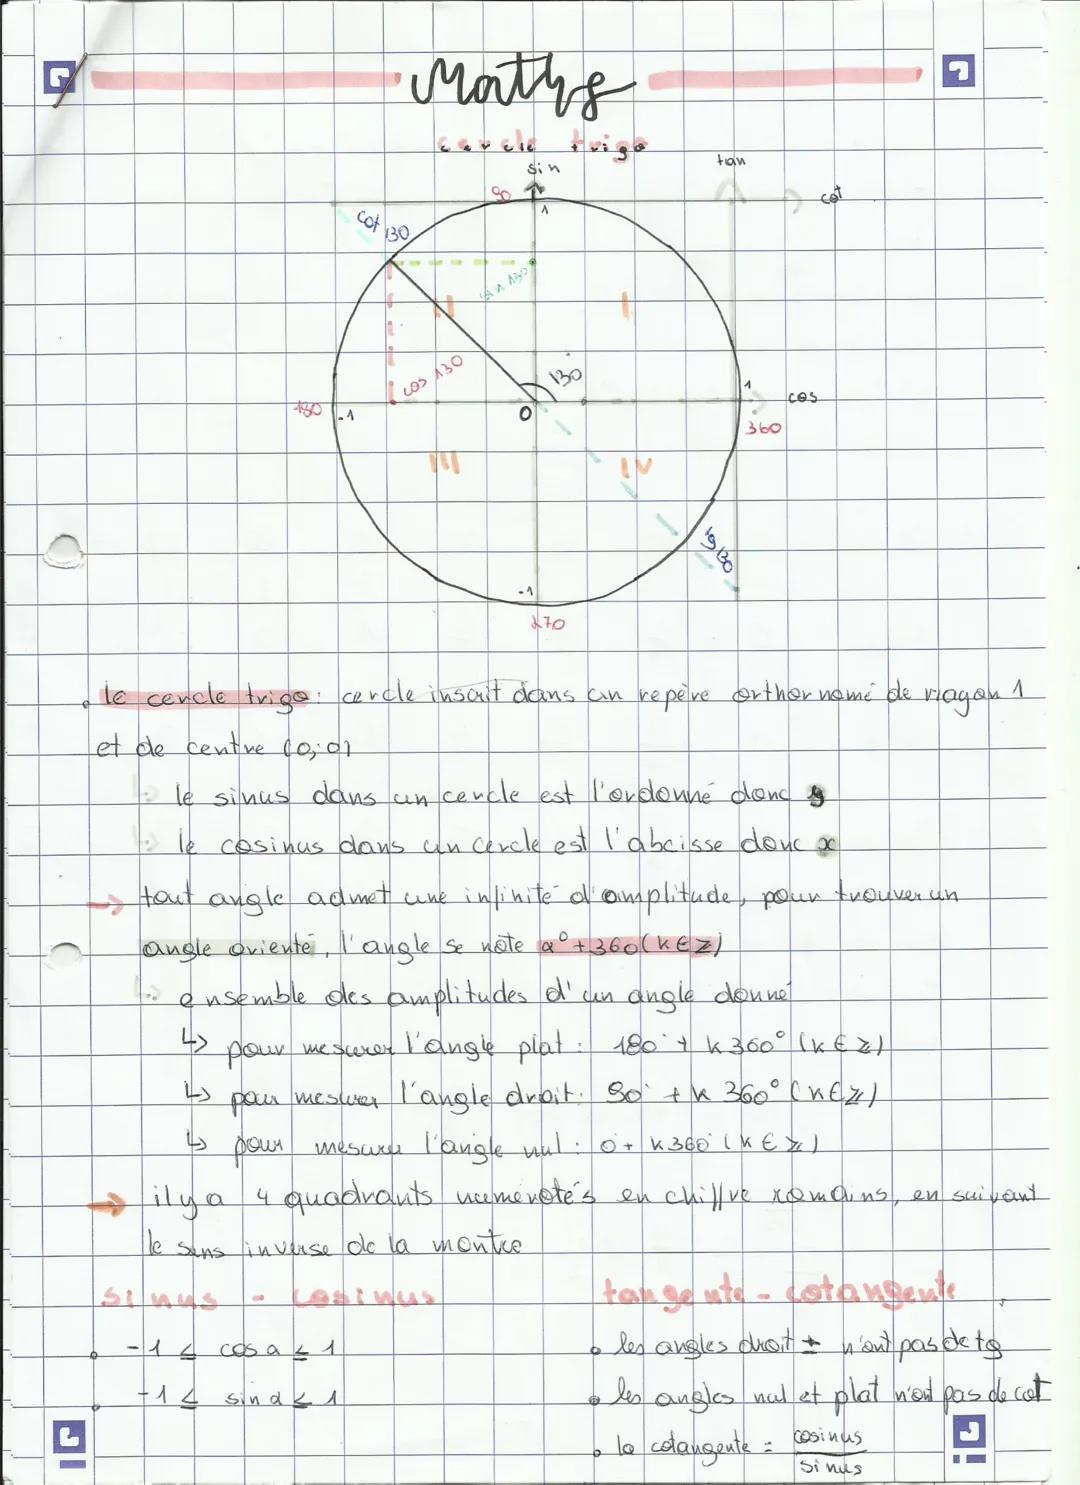 Maths
cercle trigo
sin
tan
90
1
cot
cot 130
sin 130
II
I
cos 130
130°
180
-1
0
1
cos
360
III
IV
tg 130
-1
270
le cercle trigo : cercle inscrit dans un repère orthornomé de rayon 1
et de centre (0;0)
↳ le sinus dans un cercle est l'ordonné donc y
↳ le cosinus dans un cercle est l'abcisse donc x
→ tout angle admet une infinité d'amplitude, pour trouver un
angle orienté, l'angle se note α° + 360 (k ∈ Z)
↳ ensemble des amplitudes d'un angle donné
↳ pour mesurer l'angle plat : 180° + k 360° (k ∈ Z)
↳ pour mesurer l'angle droit : 90° + k 360° (k ∈ Z)
↳ pour mesurer l'angle nul : 0 + k 360° (k ∈ Z)
→ il y a 4 quadrants numérotés en chiffre romains, en suivant
le sens inverse de la montre
sinus - cosinus
• -1 ≤ cos a ≤ 1
• -1 ≤ sin a ≤ 1
tangente - cotangente
• les angles droit ± n'ont pas de tg
• les angles nul et plat n'ont pas de cot
• la cotangente = cosinus
sinus